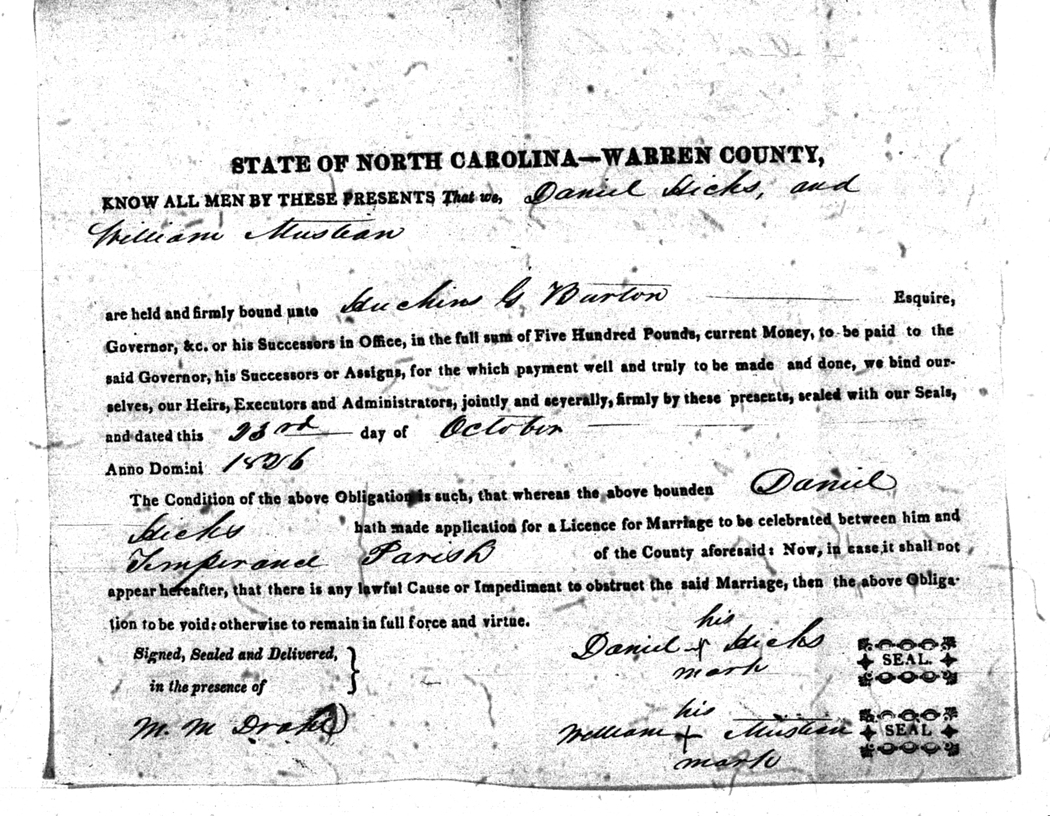 STATE OF NORTH CAROLINA—WARREN COUNTY,
KNOW ALL MEN BY THESE PRESENTS That we, Daniel Hicks, and
William Mustian
are held and firmly bound unto Huchins G Burton Esquire,
Governor, &c. or his Successors in Office, in the full sum of Five Hundred Pounds, current Money, to be paid to the
said Governor, his Successors or Assigns, for the which payment well and truly to be made and done, we bind our-
selves, our Heirs, Executors and Administrators, jointly and severally, firmly by these presents, sealed with our Seals,
and dated this 23rd day of October
Anno Domini 1826
The Condition of the above Obligation is such, that whereas the above bounden Daniel
Hicks hath made application for a Licence for Marriage to be celebrated between him and
Temperance Parish of the County aforesaid: Now, in case it shall not
appear hereafter, that there is any lawful Cause or Impediment to obstruct the said Marriage, then the above Obliga-
tion to be void: otherwise to remain in full force and virtue.
Signed, Sealed and Delivered,
in the presence of
M. M Drake
his
Daniel + Hicks SEAL.
mark
his
William + Mustian SEAL
mark